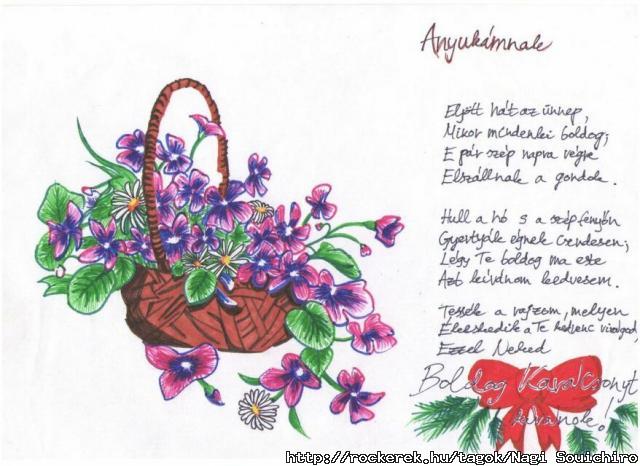 Anyukámnak
Eljött hát az ünnep,
Mikor mindenki boldog;
E pár szép napra végre
Elszállnak a gondok.
Hull a hó s a szép fenyőn
Gyertyák égnek csendesen;
Légy Te boldog ma este
Azt kívánom kedvesem.
Tessék a rajzom, melyen
Élekshedik a Te kedvenc virágod,
Ezzel Neked
Boldog Karácsonyt
kívánok!
http://rockerek.hu/tagok/Nagi_Souichiro